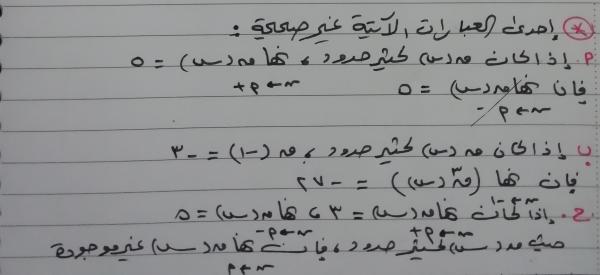 * إحدى العبارات الآتية غير صحيحة :
م. إذا كان ق(س) كثير حدود ، نها ق(س) = ٥
س←م+
فإن نها ق(س) = ٥
س←م-
ب. إذا كان ق(س) كثير حدود ، ق(-١) = -٣
فإن نها (ق٣(س)) = -٢٧
س←-١
ج. إذا كانت نها ق(س) = ٣ ، نها ق(س) = ٥
س←م+ س←م-
حيث ق(س) كثير حدود ، فإن نها ق(س) غير موجودة
س←م